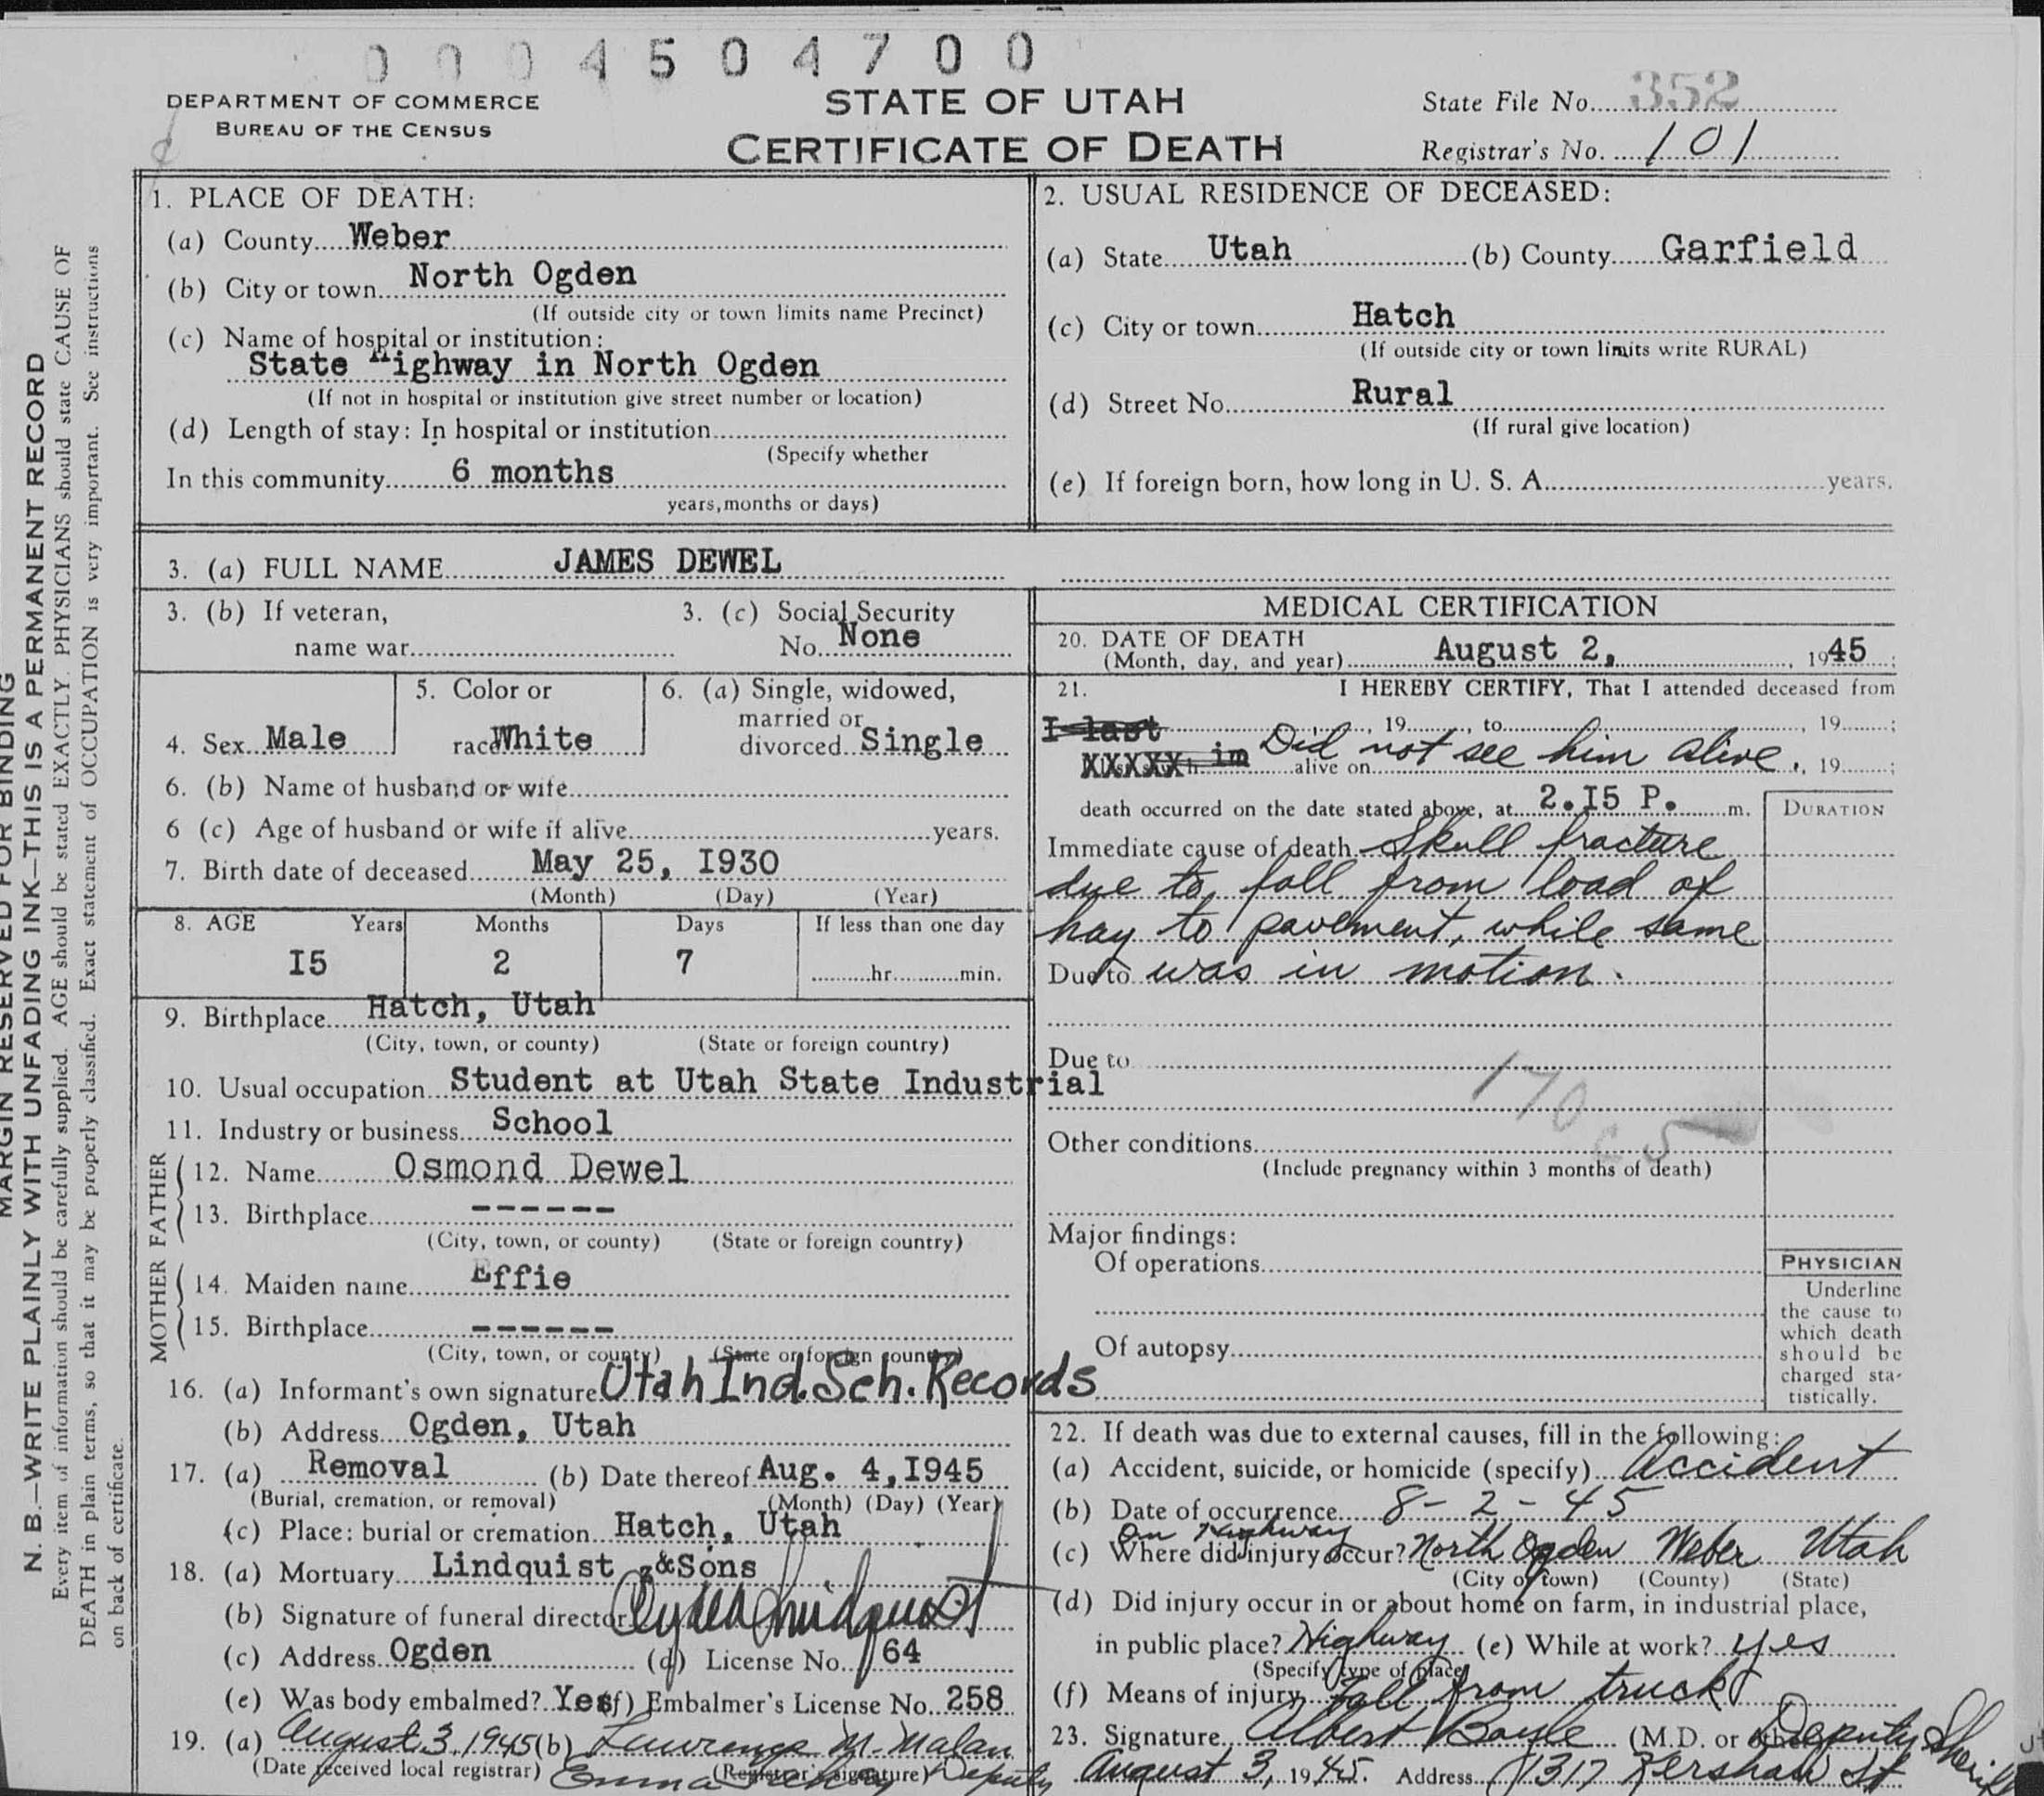 0004504700
DEPARTMENT OF COMMERCE
BUREAU OF THE CENSUS
STATE OF UTAH
CERTIFICATE OF DEATH
State File No. 352
Registrar's No. 101
MARGIN RESERVED FOR BINDING
N. B.—WRITE PLAINLY WITH UNFADING INK—THIS IS A PERMANENT RECORD
Every item of information should be carefully supplied. AGE should be stated EXACTLY. PHYSICIANS should state CAUSE OF
DEATH in plain terms, so that it may be properly classified. Exact statement of OCCUPATION is very important. See instructions
on back of certificate.
1. PLACE OF DEATH:
(a) County Weber
(b) City or town North Ogden
(If outside city or town limits name Precinct)
(c) Name of hospital or institution:
State Highway in North Ogden
(If not in hospital or institution give street number or location)
(d) Length of stay: In hospital or institution
(Specify whether
In this community 6 months
years, months or days)
2. USUAL RESIDENCE OF DECEASED:
(a) State Utah (b) County Garfield
(c) City or town Hatch
(If outside city or town limits write RURAL)
(d) Street No. Rural
(If rural give location)
(e) If foreign born, how long in U. S. A. years.
3. (a) FULL NAME JAMES DEWEL
3. (b) If veteran,
name war
3. (c) Social Security
No. None
4. Sex Male
5. Color or
race White
6. (a) Single, widowed,
married or
divorced Single
6. (b) Name of husband or wife
6 (c) Age of husband or wife if alive years.
7. Birth date of deceased May 25, I930
(Month) (Day) (Year)
8. AGE Years Months Days If less than one day
I5 2 7 hr. min.
9. Birthplace Hatch, Utah
(City, town, or county) (State or foreign country)
10. Usual occupation Student at Utah State Industrial
11. Industry or business School
FATHER
12. Name Osmond Dewel
13. Birthplace ------
(City, town, or county) (State or foreign country)
MOTHER
14. Maiden name Effie
15. Birthplace ------
(City, town, or county) (State or foreign country)
16. (a) Informant's own signature Utah Ind. Sch. Records
(b) Address Ogden, Utah
17. (a) Removal (b) Date thereof Aug. 4, I945
(Burial, cremation, or removal) (Month) (Day) (Year)
(c) Place: burial or cremation Hatch, Utah
18. (a) Mortuary Lindquist &Sons
(b) Signature of funeral director Lindquist
(c) Address Ogden (d) License No. 64
(e) Was body embalmed? Yes (f) Embalmer's License No. 258
19. (a) August 3, 1945 (b) Lawrence M. Malan
(Date received local registrar) (Registrar's signature) Emma Deputy
MEDICAL CERTIFICATION
20. DATE OF DEATH
(Month, day, and year) August 2, 1945;
21. I HEREBY CERTIFY, That I attended deceased from
I last , 19 , to , 19 ;
XXXXX h im alive on Did not see him alive. , 19 ;
death occurred on the date stated above, at 2.I5 P. m.
DURATION
Immediate cause of death Skull fracture
due to fall from load of
hay to pavement, while same
Due to was in motion.
Due to
170
c 5
Other conditions
(Include pregnancy within 3 months of death)
Major findings:
Of operations
Of autopsy
PHYSICIAN
Underline
the cause to
which death
should be
charged sta-
tistically.
22. If death was due to external causes, fill in the following:
(a) Accident, suicide, or homicide (specify) Accident
(b) Date of occurrence 8-2-45
On Highway
(c) Where did injury occur? North Ogden Weber Utah
(City or town) (County) (State)
(d) Did injury occur in or about home on farm, in industrial place,
in public place? Highway (e) While at work? yes
(Specify type of place)
(f) Means of injury Fall from truck
23. Signature Albert Boyle (M.D. or other) Deputy Sheriff
August 3, 1945. Address 1317 Kershaw St